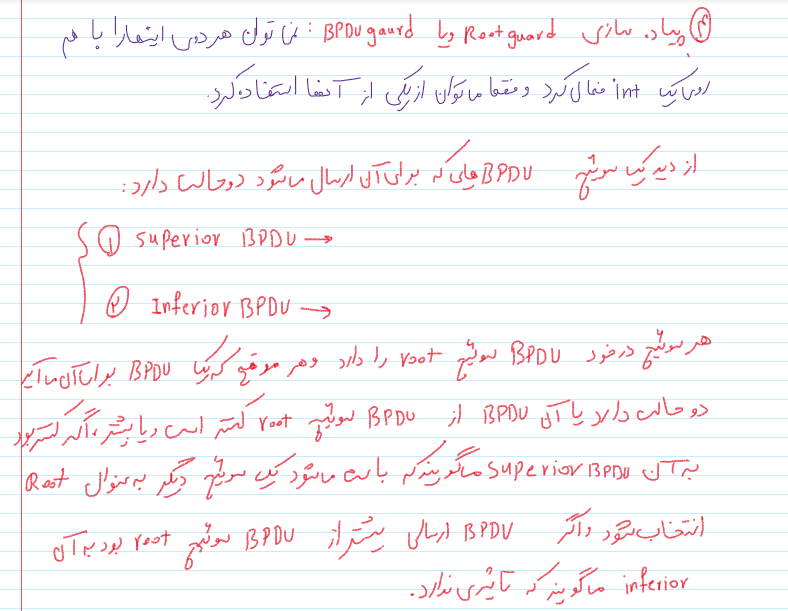 ④ پیاده سازی Root guard و یا BPDU gaurd : نمی توان هر دوی اینها را با هم
روی یک int فعال کرد و فقط می توان از یکی از آنها استفاده کرد.
از دید یک سوئیچ BPDU هایی که برای آن ارسال می شود دو حالت دارد :
① Superior BPDU →
② Inferior BPDU →
هر سوئیچ در خود BPDU سوئیچ root را دارد و هر موقع که یک BPDU برای آن می آید
دو حالت دارد یا آن BPDU از BPDU سوئیچ root کمتر است و یا بیشتر ، اگر کمتر بود
به آن Superior BPDU می گویند که باعث می شود یک سوئیچ دیگر به عنوان Root
انتخاب شود و اگر BPDU ارسالی بیشتر از BPDU سوئیچ root بود به آن
inferior می گویند که تأثیری ندارد.